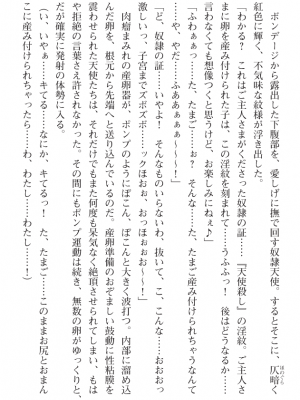 ボンデージから露出した下腹部を、愛しげに撫で回す奴隷天使。するとそこに、仄暗く
ほのぐら
紅色に輝く、不気味な紋様が浮き出した。
「わかる？　これはご主人さまがくださった奴隷の証……『天使殺し』の淫紋。ご主人さ
まに卵を産み付けられた子は、この淫紋を刻まれて……うふふっ！　後はどうなるか……
言わなくても想像つくと思うけど、お楽しみにねぇ♪」
「ふわぁぁっ……た、たまご……ぉ？　産み付け、られちゃったらっ……奴隷、に……
……や、やだ……ふあぁぁぁぁ～～～！」
「ど、奴隷の証……いやよ！　そんなものいらないわ、抜いて、こ、こんな……おおっ
激しいっ、子宮までズボズボ……ックほおぉ、おっほぉぉぉおおぉ～～～！」
　肉瘤まみれの産卵器が、ポンプのようにぼこん、ぼこんと大きく波打つ。内部に溜め込
んだ卵を、根元から先端へと送り込んでいるのだ。産卵準備のおぞましい鼓動に性粘膜を
震わされた天使たちは、それだけでもまた何度も呆気なく絶頂させられてしまい、もは
や拒絶の言葉さえ許されなかった。その間にもポンプ運動は続き、無数の卵がゆっくりと、
だが確実に発射の体勢に入る。
（い、いやぁ……キてる……なにか、キてるっ！　た、たまご……このままお尻とおまん
こに産み付けられちゃったら……わ、わたし、わたし……！）